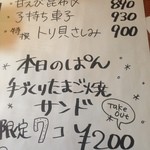 甘えび昆布〆 890
子持ち車子 930
特撰 トリ貝さしみ 900
本日のしぱん
手づくりたまご焼
サンド
Take out
限定7コ ¥200